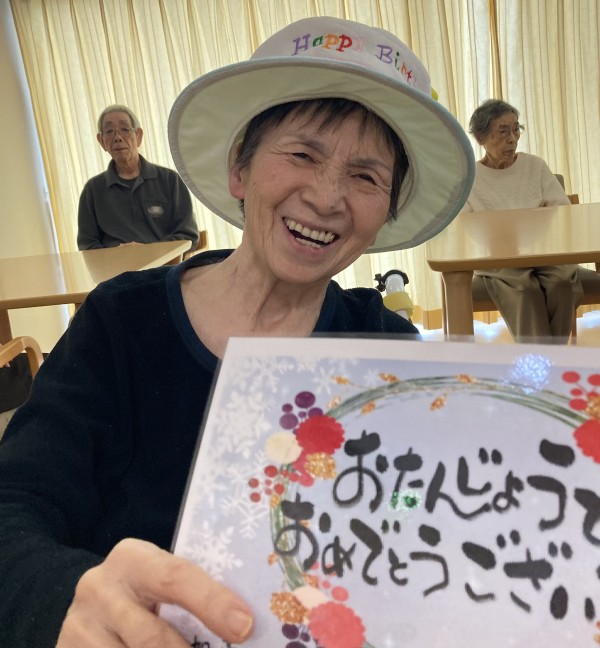 Happy Birt
おたんじょうで
おめでとうござい